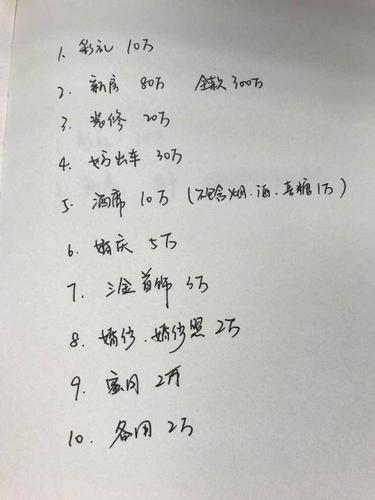 1. 彩礼 10万
2. 新房 80万 全款300万
3. 装修 20万
4. 婚车 30万
5. 酒席 10万 (不含烟.酒.喜糖1万)
6. 婚庆 5万
7. 三金首饰 3万
8. 婚纱.婚纱照 2万
9. 蜜月 2万
10. 备用 2万